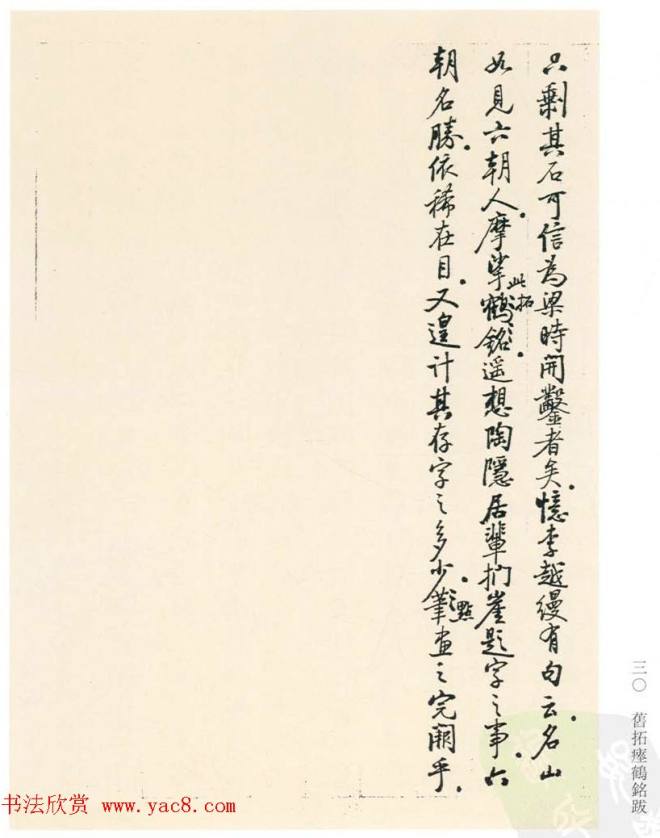 只剩其石可信為梁時開鑿者矣。憶李越縵有句云。名山
如見六朝人。摩挲此拓鶴銘。遥想陶隱居輩捫崖題字之事。六
朝名勝。依稀在目。又遑計其存字之多少。筆點畫之完闕乎。
三〇 舊拓瘞鶴銘跋
书法欣赏 www.yac8.com